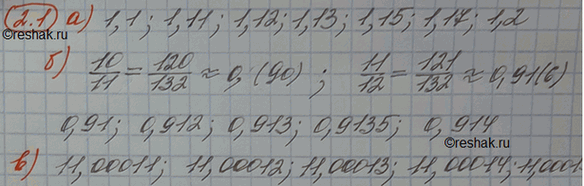 2.1 а) 1,1; 1,11; 1,12; 1,13; 1,15; 1,17; 1,2
©reshak.ru
б) 10/11 = 120/132 ≈ 0,(90); 11/12 = 121/132 ≈ 0,91(6)
0,91; 0,912; 0,913; 0,9135; 0,914
©reshak.ru
в) 11,00011; 11,00012; 11,00013; 11,00014; 11,0001